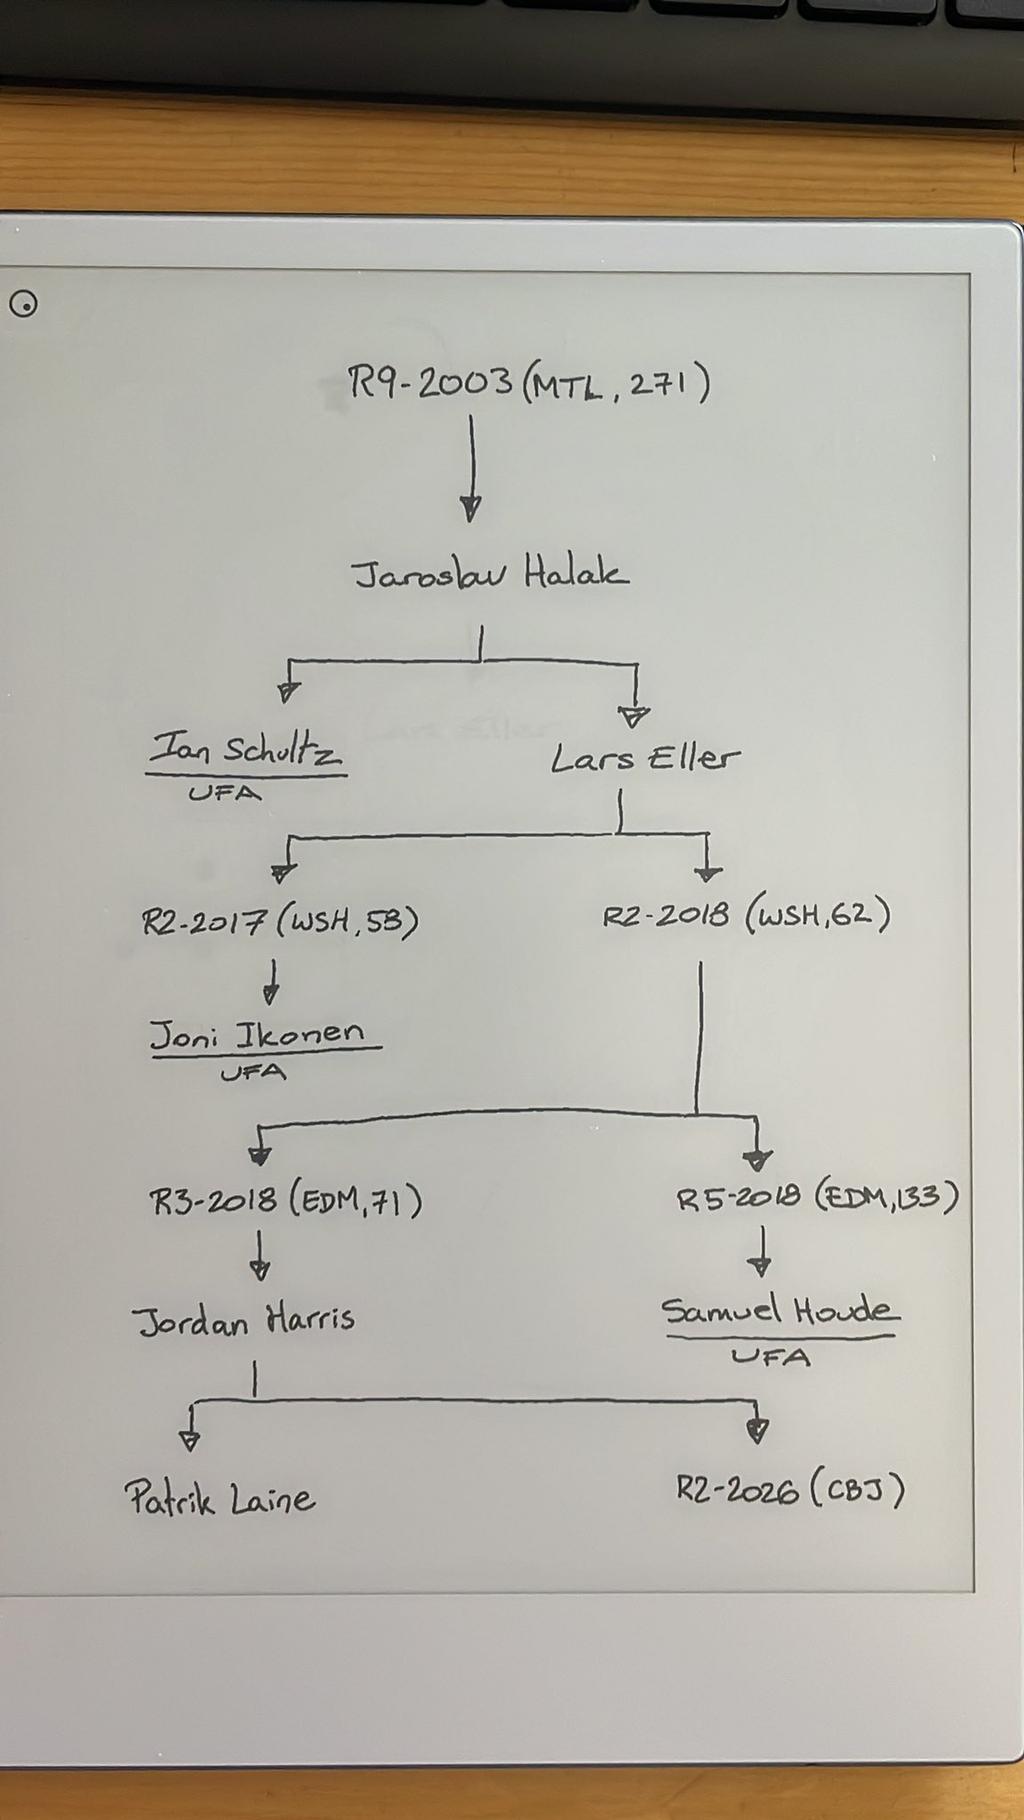 R9-2003 (MTL, 271)
Jaroslav Halak
Ian Schultz
UFA
Lars Eller
R2-2017 (WSH, 58)
R2-2018 (WSH, 62)
Joni Ikonen
UFA
R3-2018 (EDM, 71)
R5-2018 (EDM, 133)
Jordan Harris
Samuel Houde
UFA
Patrik Laine
R2-2026 (CBJ)